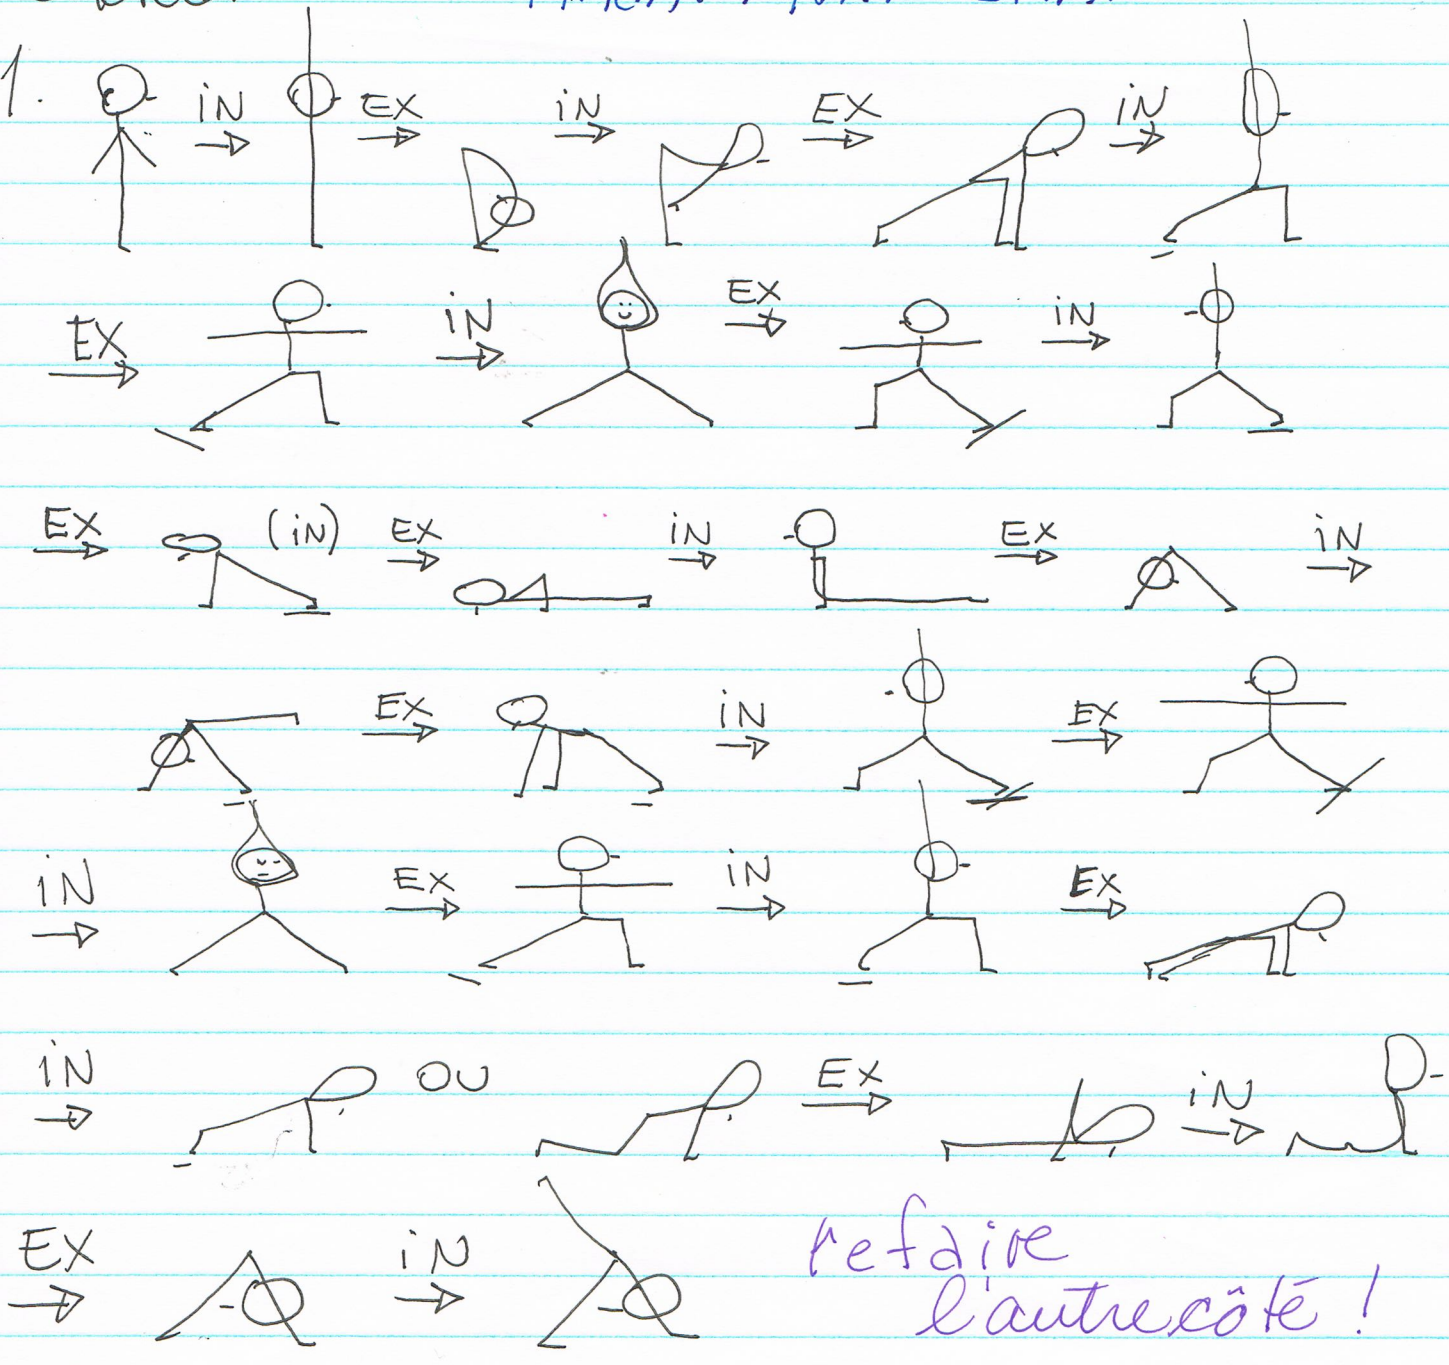 1. iN EX iN EX iN
EX iN EX iN
EX (iN) EX iN EX iN
EX iN EX
iN EX iN EX
iN OU EX iN
EX iN refaire
l'autre côté !